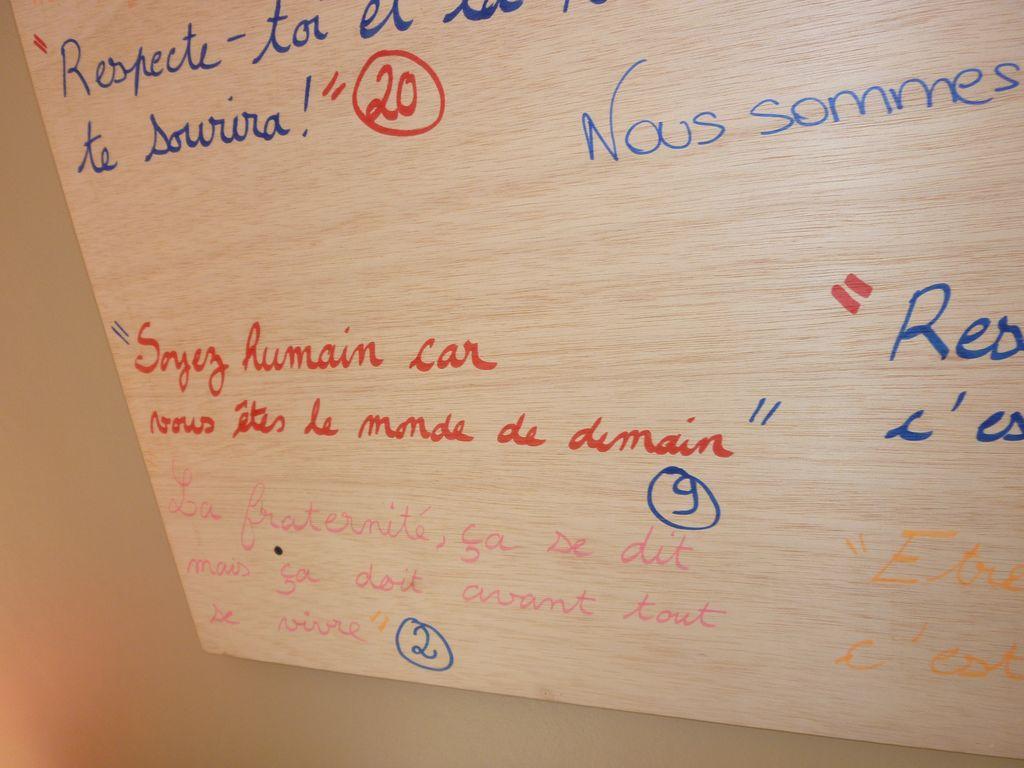 "Respecte-toi et la
te sourira!" 20
Nous sommes
"Soyez humain car
vous êtes le monde de demain"
9
La fraternité, ça se dit
mais ça doit avant tout
se vivre" 2
" Res
c'es
" Etre
c'est